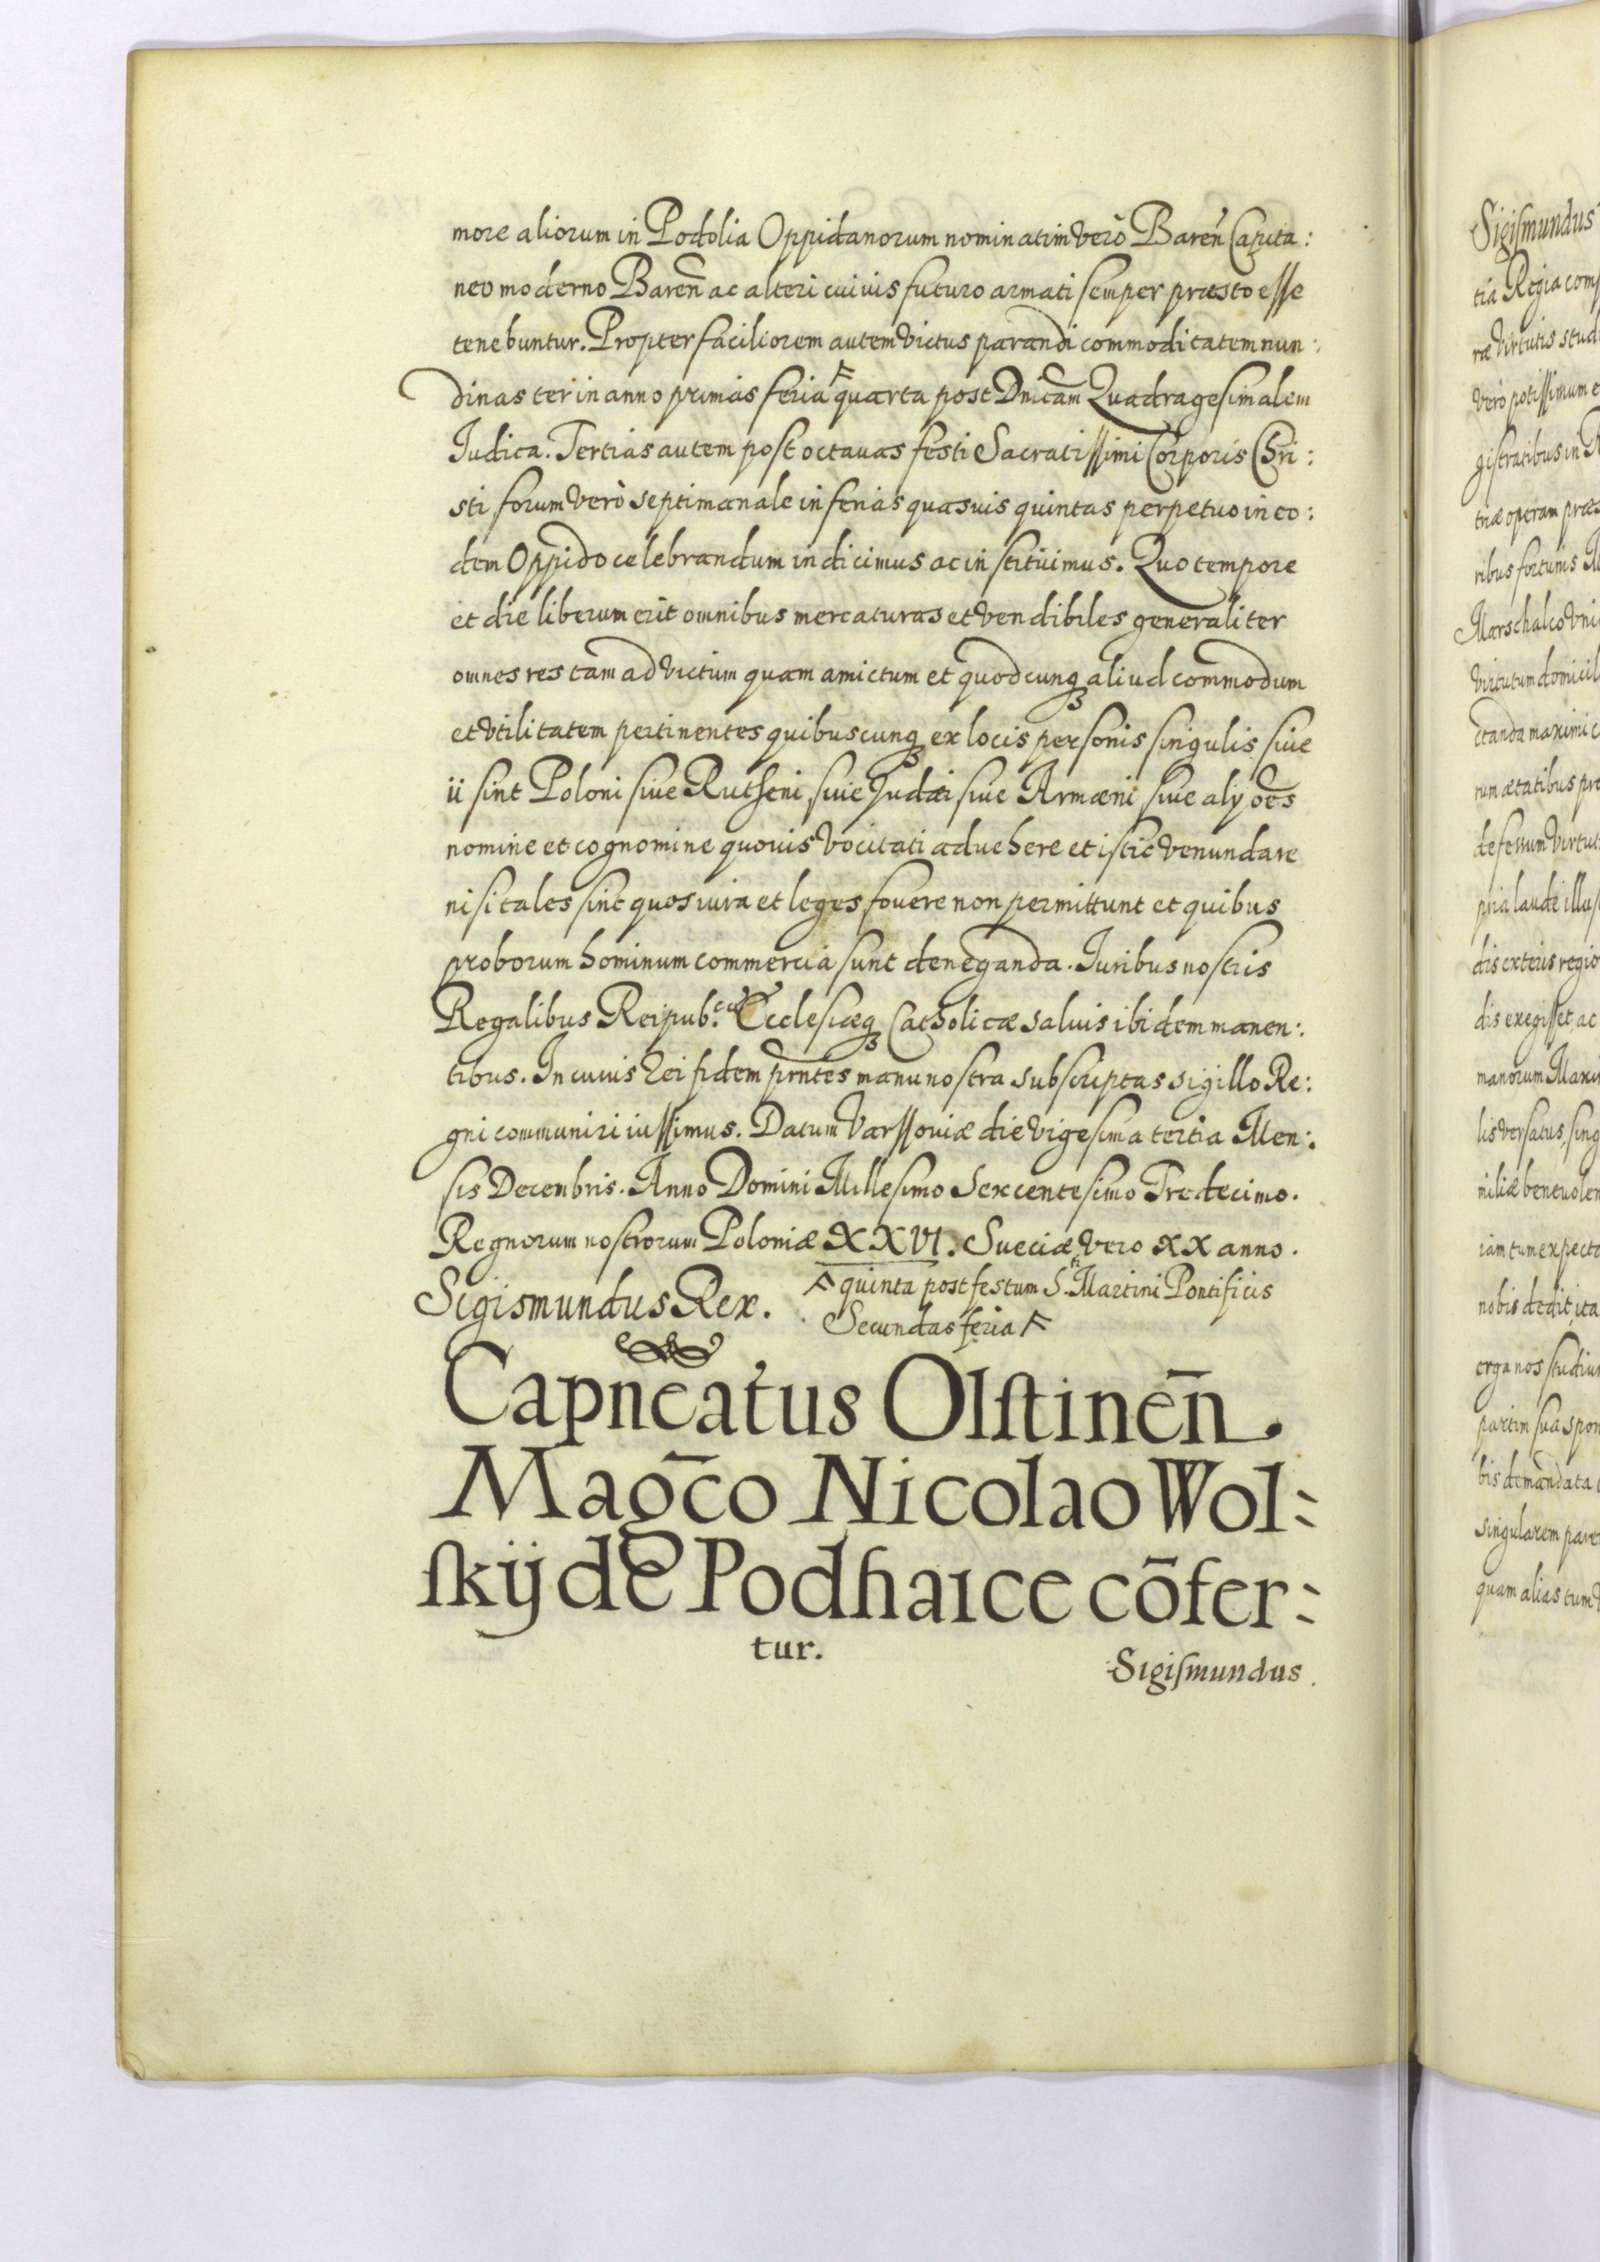 more aliorum in Podolia Oppidanorum nominatim verò Bareñ Capita:
neo moderno Bareñ ac alteri cuivis futuro armati semper præsto esse
tenebuntur. Propter faciliorem autem victus parandi commoditatem nun:
dinas ter in anno primas feria quarta post Dnicam Quadragesimalem
Iudica. Tertias autem post octauas festi Sacratissimi Corporis Chri:
sti forum verò septimanale in ferias quasuis quintas perpetuo in eo:
dem Oppido celebrandum indicimus ac instituimus. Quo tempore
et die liberum erit omnibus mercaturas et vendibiles generaliter
omnes res tam ad victum quam amictum et quodcunqꝫ aliud commodum
et vtilitatem pertinentes quibuscunqꝫ ex locis personis singulis siue
ii sint Poloni siue Rutheni, siue Iudæi siue Armæni siue alij oẽs
nomine et cognomine quouis vocitati aduehere et istic venundare
nisi tales sint quos iura et leges fouere non permittunt et quibus
proborum hominum commercia sunt deneganda. Iuribus nostris
Regalibus Reipub. Ecclesiæqꝫ Catholicæ saluis ibidem manen:
tibus. In cuius rei fidem pr̃ntes manu nostra subscriptas sigillo Re:
gni communiri iussimus. Datum Varssoviæ die vigesima tertia Men:
sis Decenbris. Anno Domini Millesimo Sexcentesimo Tredecimo.
Regnorum nostrorum Poloniæ XXVI. Sueciæ vero XX anno.
Sigismundus Rex.
quinta post festum S. Martini Pontificis
Secundas feria
Capnẽatus Olstineñ.
Magc̃o Nicolao Wol:
skij de Podhaice cõfer:
tur.
Sigismundus
Sigismundus
tia Regia
ræ virtutis
verò potissimum
gistratibus in
ribus fortunis
Marschalco
virtutum
ctanda maximi
rum ætatibus
pria laude
dis exteris
dis exegisset, ac
manorum
lis versatus,
iam tum
nobis dedit, ita
erga nos
partim sua
bis demandata
singularem
quam alias tum